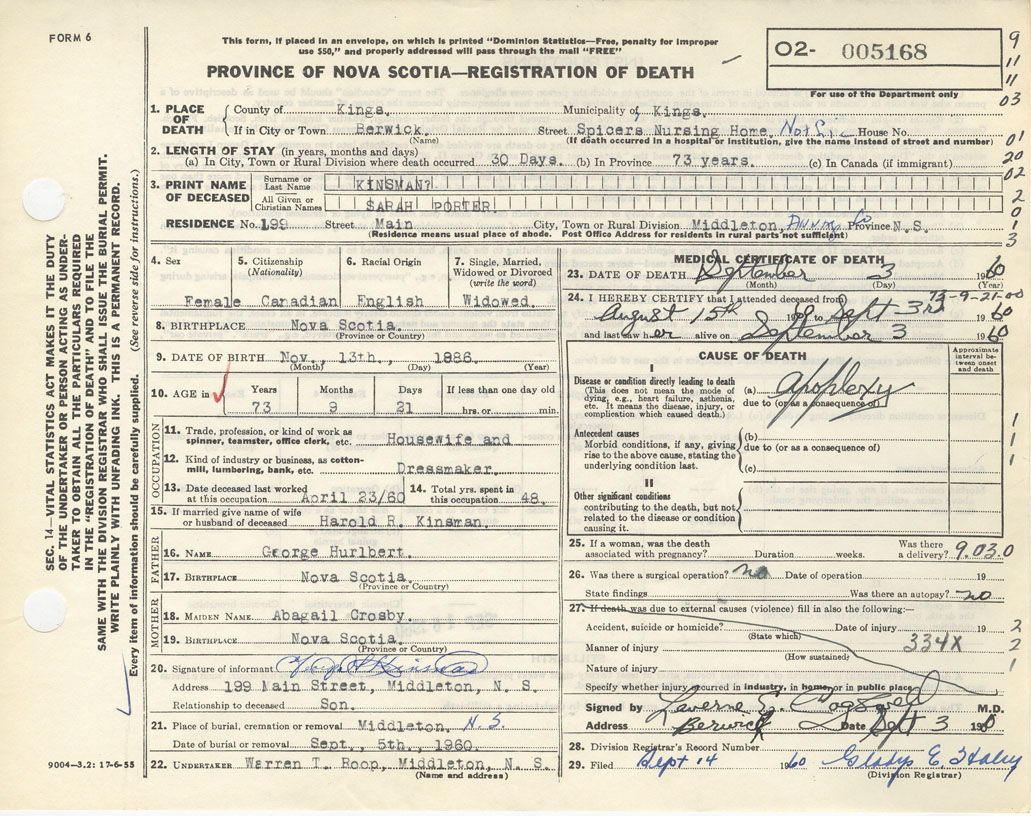 FORM 6
This form, if placed in an envelope, on which is printed "Dominion Statistics—Free, penalty for improper
use $50," and properly addressed will pass through the mail "FREE"
PROVINCE OF NOVA SCOTIA—REGISTRATION OF DEATH
O2- 005168
For use of the Department only
9
11
11
03
01
20
02
2
0
1
3
1. PLACE OF DEATH { County of Kings. Municipality of Kings.
If in City or Town Berwick. Street Spicers Nursing Home. House No.
(Name) (If death occurred in a hospital or institution, give the name instead of street and number)
2. LENGTH OF STAY (in years, months and days)
(a) In City, Town or Rural Division where death occurred 30 Days. (b) In Province 73 years. (c) In Canada (if immigrant)
3. PRINT NAME OF DECEASED { Surname or Last Name KINSMAN?
All Given or Christian Names SARAH PORTER
RESIDENCE No. 199 Street Main City, Town or Rural Division Middleton, Annap Co. Province N.S.
(Residence means usual place of abode. Post Office Address for residents in rural parts not sufficient)
4. Sex Female
5. Citizenship (Nationality) Canadian
6. Racial Origin English
7. Single, Married, Widowed or Divorced (write the word) Widowed.
8. BIRTHPLACE Nova Scotia.
(Province or Country)
9. DATE OF BIRTH Nov., 13th., 1886.
(Month) (Day) (Year)
10. AGE in ✓ Years 73 Months 9 Days 21 If less than one day old hrs. or min.
OCCUPATION
11. Trade, profession, or kind of work as spinner, teamster, office clerk, etc. Housewife and
12. Kind of industry or business, as cotton-mill, lumbering, bank, etc. Dressmaker.
13. Date deceased last worked at this occupation April 23/60 14. Total yrs. spent in this occupation 48.
15. If married give name of wife or husband of deceased Harold R. Kinsman.
FATHER
16. NAME George Hurlbert.
17. BIRTHPLACE Nova Scotia.
(Province or Country)
MOTHER
18. MAIDEN NAME Abagail Crosby.
19. BIRTHPLACE Nova Scotia.
(Province or Country)
20. Signature of informant Kinsman
Address 199 Main Street, Middleton, N. S.
Relationship to deceased Son.
21. Place of burial, cremation or removal Middleton, N. S.
Date of burial or removal Sept., 5th., 1960.
22. UNDERTAKER Warren T. Roop, Middleton, N. S.
(Name and address)
MEDICAL CERTIFICATE OF DEATH
23. DATE OF DEATH September 3 1960
(Month) (Day) (Year)
73-9-21-00
24. I HEREBY CERTIFY that I attended deceased from
August 15th 1960 to Sept 3rd 1960
and last saw her alive on September 3 1960
CAUSE OF DEATH
Approximate interval between onset and death
I
Disease or condition directly leading to death
(This does not mean the mode of dying, e.g., heart failure, asthenia, etc. It means the disease, injury, or complication which caused death.)
(a) Apoplexy
due to (or as a consequence of)
Antecedent causes
Morbid conditions, if any, giving rise to the above cause, stating the underlying condition last.
(b)
due to (or as a consequence of)
(c)
II
Other significant conditions
contributing to the death, but not related to the disease or condition causing it.
1
1
1
25. If a woman, was the death associated with pregnancy? Duration weeks. Was there a delivery? 9.03.0
26. Was there a surgical operation? no Date of operation 19
State findings Was there an autopsy? no
27. If death was due to external causes (violence) fill in also the following:—
Accident, suicide or homicide? Date of injury 19
(State which)
Manner of injury 334X
(How sustained)
Nature of injury
2
2
1
Specify whether injury occurred in industry, in home, or in public place
Signed by Laverne E. Cogswell M.D.
Address Berwick Date Sept 3 1960
28. Division Registrar's Record Number
29. Filed Sept 14 1960 Gladys E. Haley
(Division Registrar)
SEC. 14—VITAL STATISTICS ACT MAKES IT THE DUTY
OF THE UNDERTAKER OR PERSON ACTING AS UNDER-
TAKER TO OBTAIN ALL THE PARTICULARS REQUIRED
IN THE "REGISTRATION OF DEATH" AND TO FILE THE
SAME WITH THE DIVISION REGISTRAR WHO SHALL ISSUE THE BURIAL PERMIT.
WRITE PLAINLY WITH UNFADING INK. THIS IS A PERMANENT RECORD.
Every item of information should be carefully supplied. (See reverse side for instructions.)
9004—3.2: 17-6-55